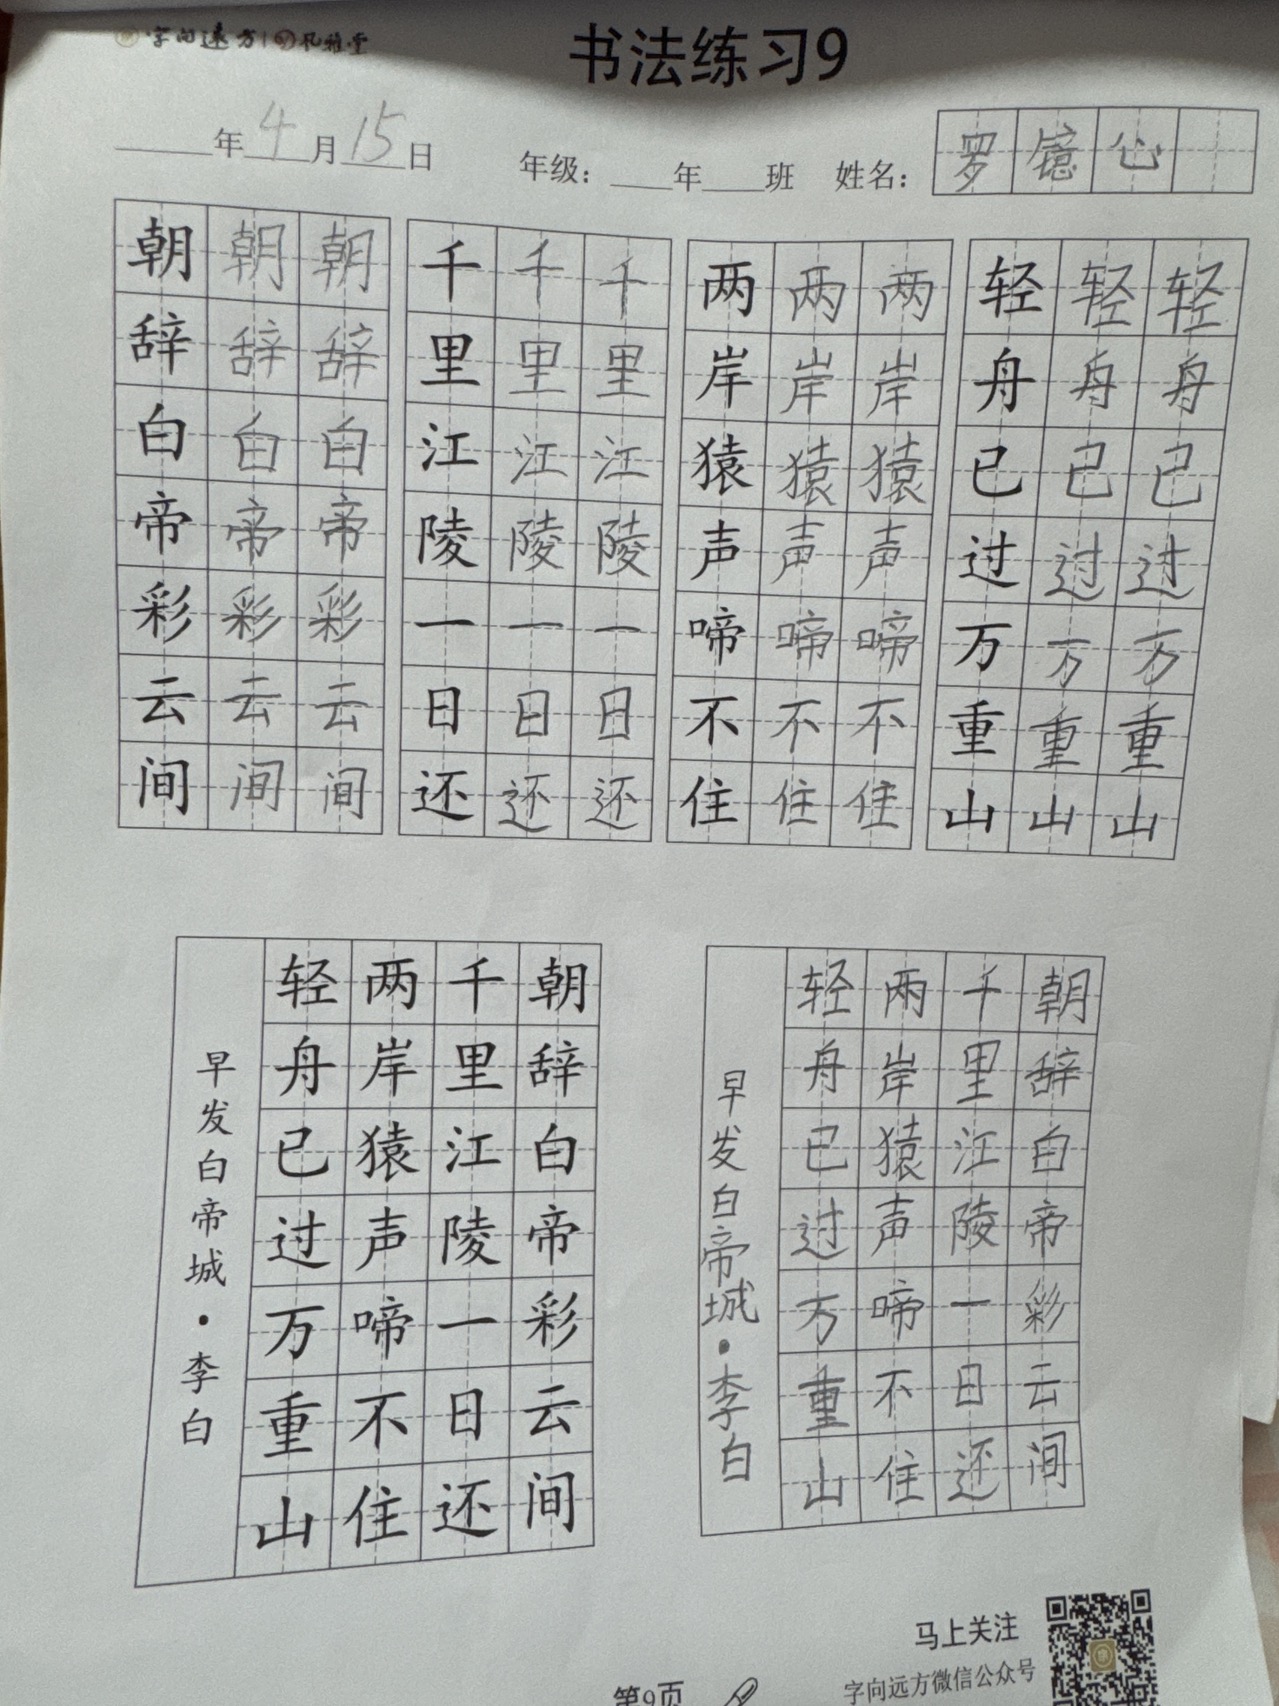 字向远方 孔雅堂
书法练习9
年4月15日 年级：年班 姓名：罗镱心
朝朝朝
辞辞辞
白白白
帝帝帝
彩彩彩
云云云
间间间
千千千
里里里
江江江
陵陵陵
一一一
日日日
还还还
两两两
岸岸岸
猿猿猿
声声声
啼啼啼
不不不
住住住
轻轻轻
舟舟舟
已已已
过过过
万万万
重重重
山山山
朝辞白帝彩云间
千里江陵一日还
两岸猿声啼不住
轻舟已过万重山
早发白帝城·李白
朝辞白帝彩云间
千里江陵一日还
两岸猿声啼不住
轻舟已过万重山
早发白帝城·李白
马上关注
字向远方微信公众号
第9页